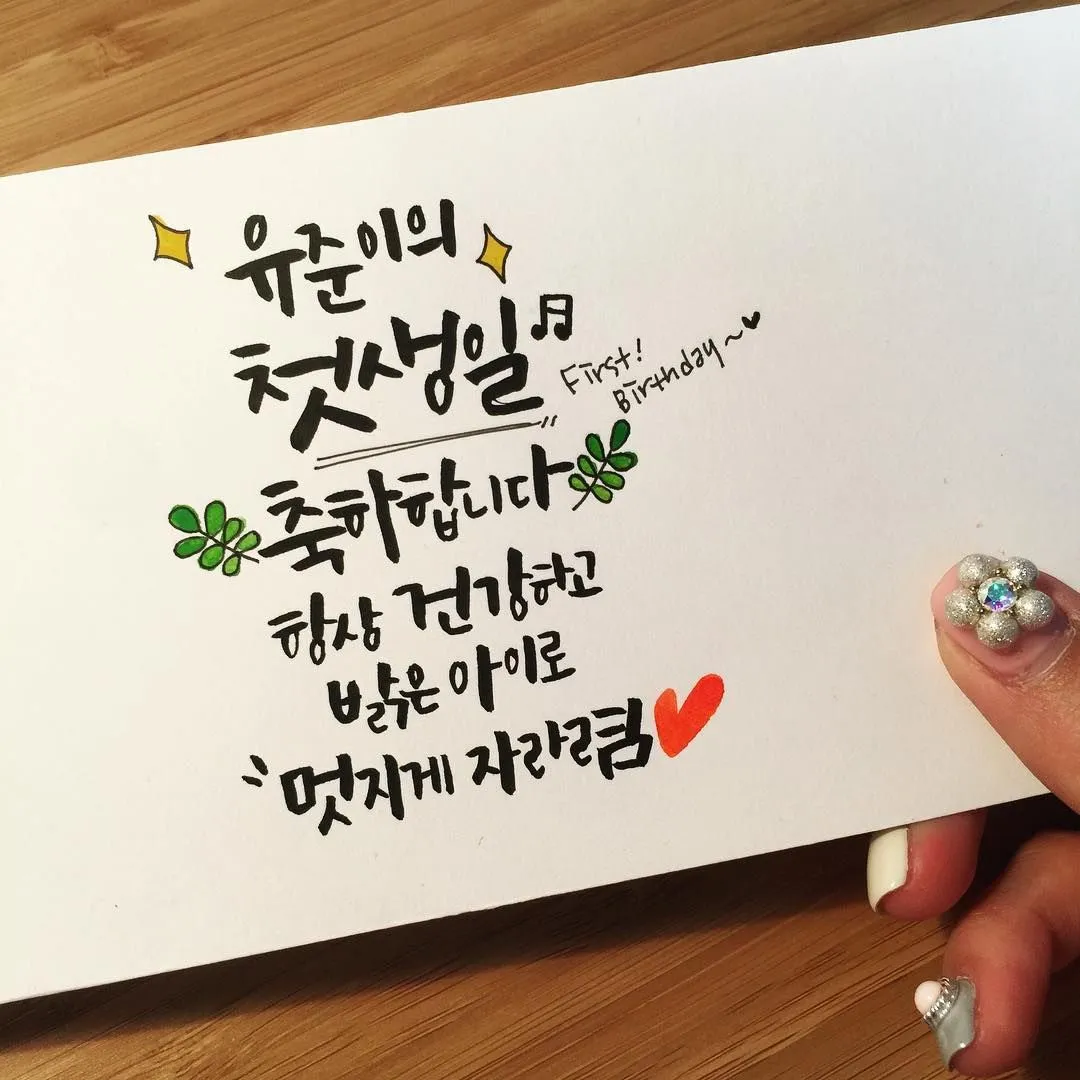 유준이의
첫생일
First!
Birthday~
축하합니다
항상 건강하고
밝은 아이로
멋지게 자라렴